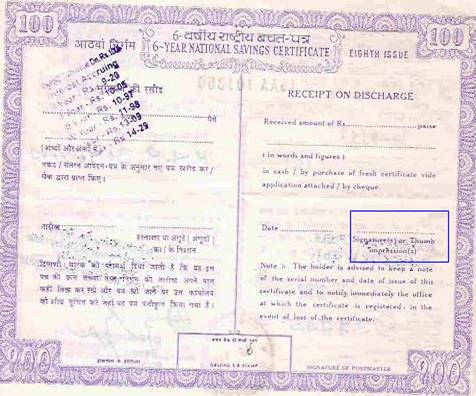 100
100
6-वर्षीय राष्ट्रीय बचत-पत्र
आठवां निर्गम
6-YEAR NATIONAL SAVINGS CERTIFICATE
EIGHTH ISSUE
Accruing
9-20
10-05
10-97
Rs. 11-98
Rs. 13-09
Rs. 14-29
की रसीद
RECEIPT ON DISCHARGE
पैसे
Received amount of Rs. paise
(शब्दों और अंकों में)
( in words and figures )
नकद / संलग्न आवेदन-पत्र के अनुसार नए पत्र खरीद कर /
चैक द्वारा प्राप्त किए।
in cash / by purchase of fresh certificate vide
application attached / by cheque.
तारीख
Date
हस्ताक्षर या अंगूठे ( अंगूठों )
का / के निशान
Signature(s) or Thumb
impression(s)
टिप्पणी: धारक को परामर्श दिया जाता है कि वह इस
पत्र की क्रम संख्या तथा निर्गम की तारीख अपने पास
कहीं लिख कर रखे और पत्र खो जाने पर उस कार्यालय
को शीघ्र सूचित करे जहाँ यह पत्र पंजीकृत किया गया है।
Note :- The holder is advised to keep a note
of the serial number and date of issue of this
certificate and to notify immediately the office
at which the certificate is registered, in the
event of loss of the certificate.
OBLONG S.B STAMP
SIGNATURE OF POSTMASTER